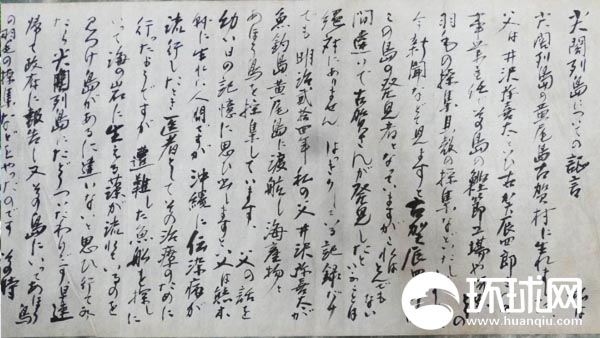 尖閣列島についての証言
尖閣列島の黄尾島古賀村に生れ
父は井沢弥喜太といひ古賀辰四郎
事業主任で島の鰹節工場や
羽毛の採集貝殻の採集など
今新聞など見ますと古賀辰四
この島の発見者となっていますが
間違いで古賀さんが発見した
絶対にありません はっきり 記録
でも明治弐拾四年私の父井沢弥喜太が
魚釣島黄尾島に渡船し海産物と
あほう鳥を採集しています 父の話を
幼い日の記憶に思ひ出しますと 父は熊本
に生れた人間ですが沖縄に伝染病が
流行したとき医者としてその治療のために
行ったようですが 遭難した魚船を探し
いて海の岩に生える藻が流れているのを
見つけ島があるに違いないと思ひ行ってみ
たら尖閣列島にたどりついたわけです 早速
帰って政府に報告し又その島にいってあほう鳥
の羽毛の採集など その時
环球网
www.huanqiu.com